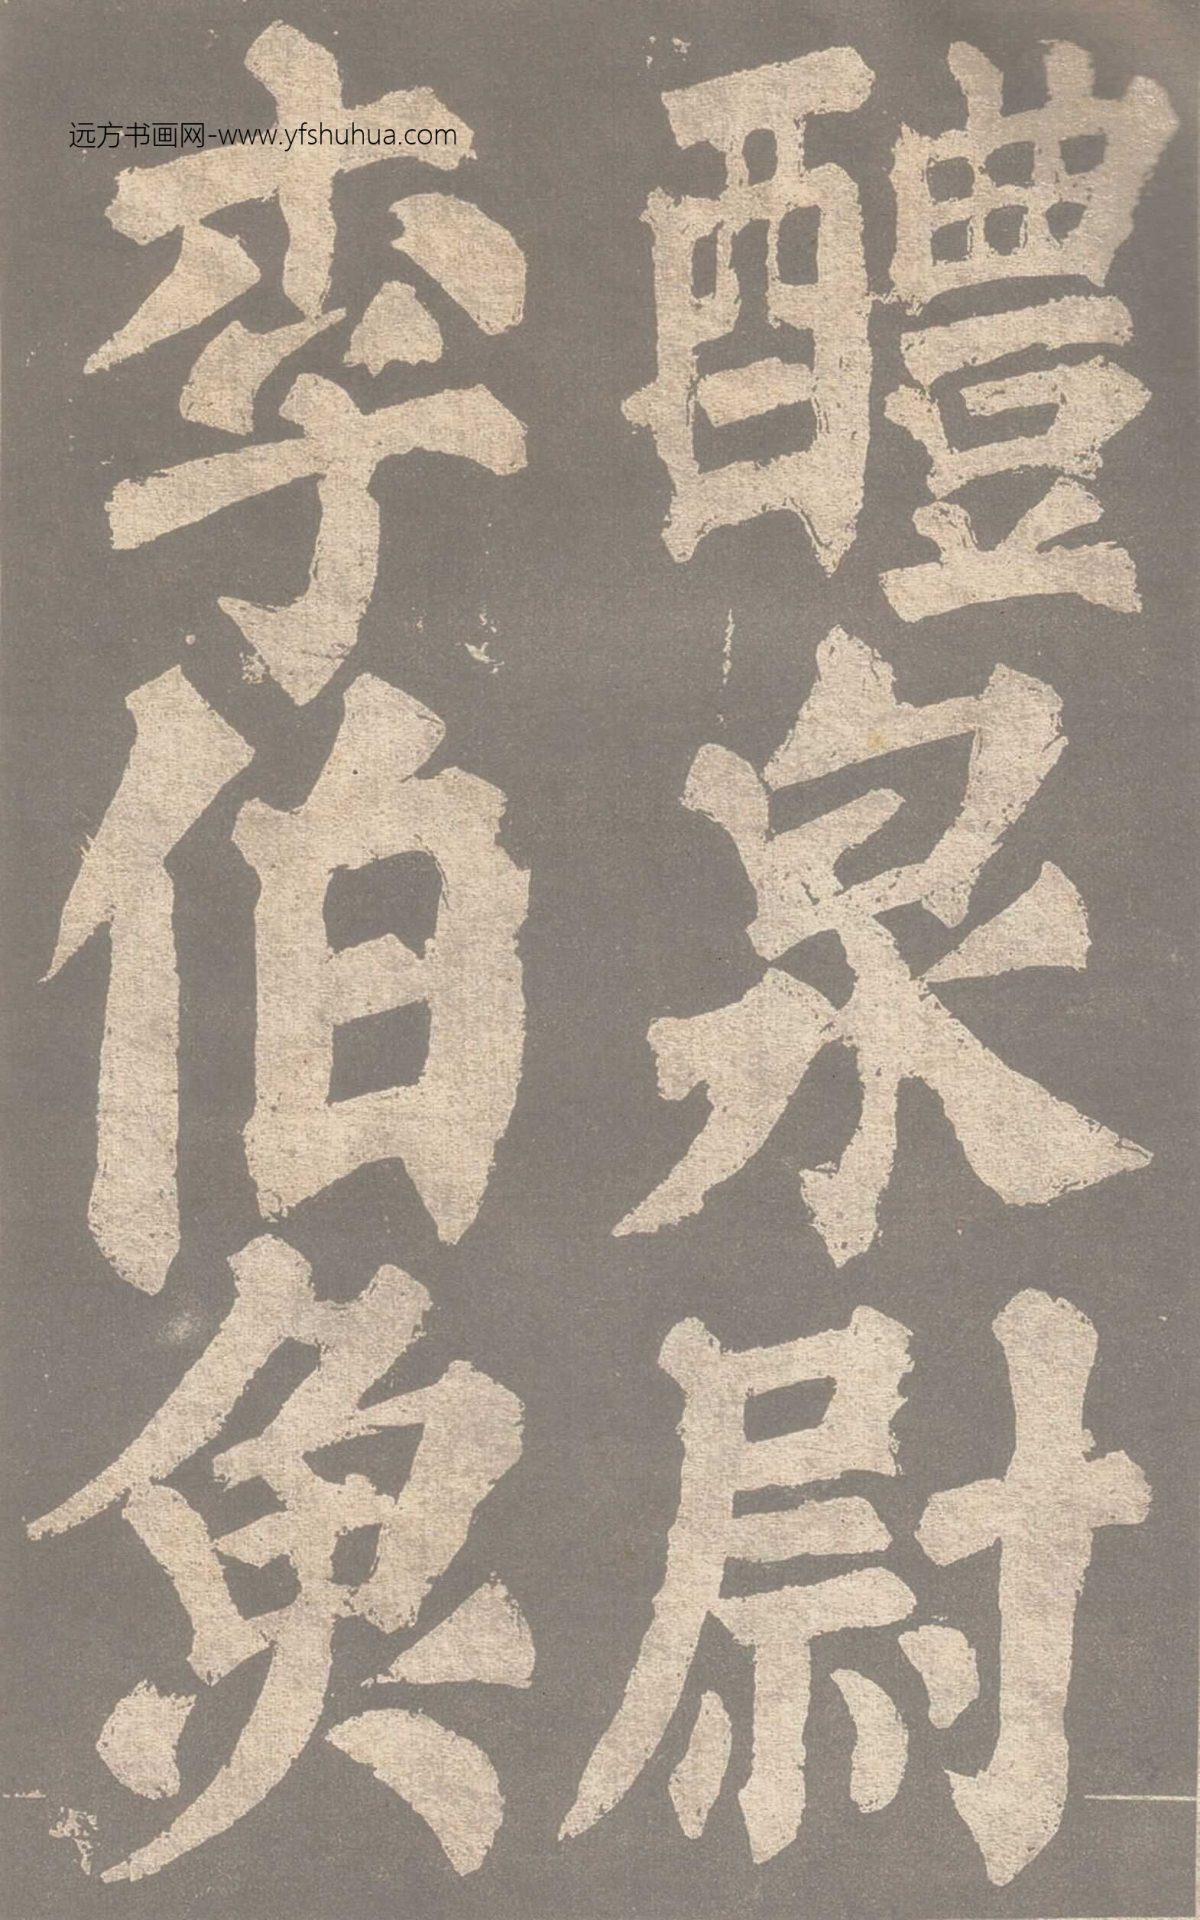 远方书画网-www.yfshuhua.com
醴泉尉
李伯魚